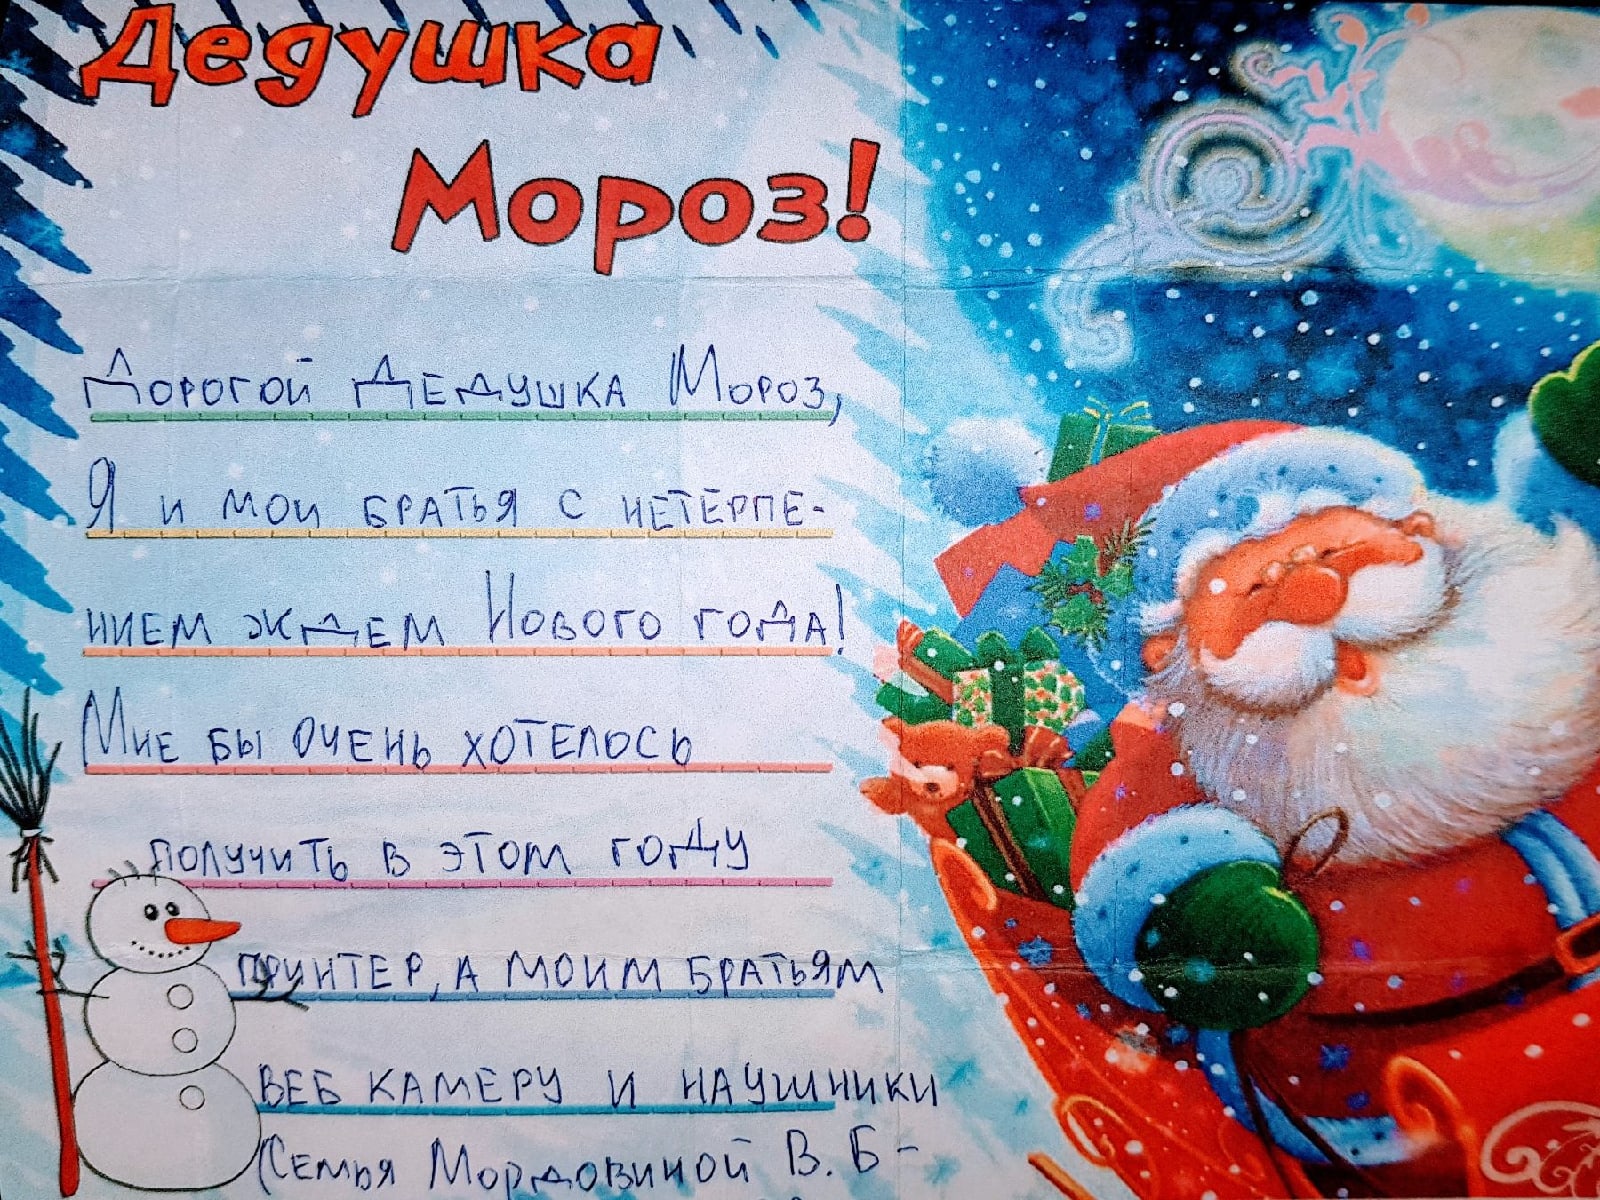 Дедушка
Мороз!
Дорогой Дедушка Мороз,
Я и мои братья с нетерпе-
нием ждем Нового года!
Мне бы очень хотелось
получить в этом году
принтер, а моим братьям
веб камеру и наушники
(Семья Мордовиной В. Б -